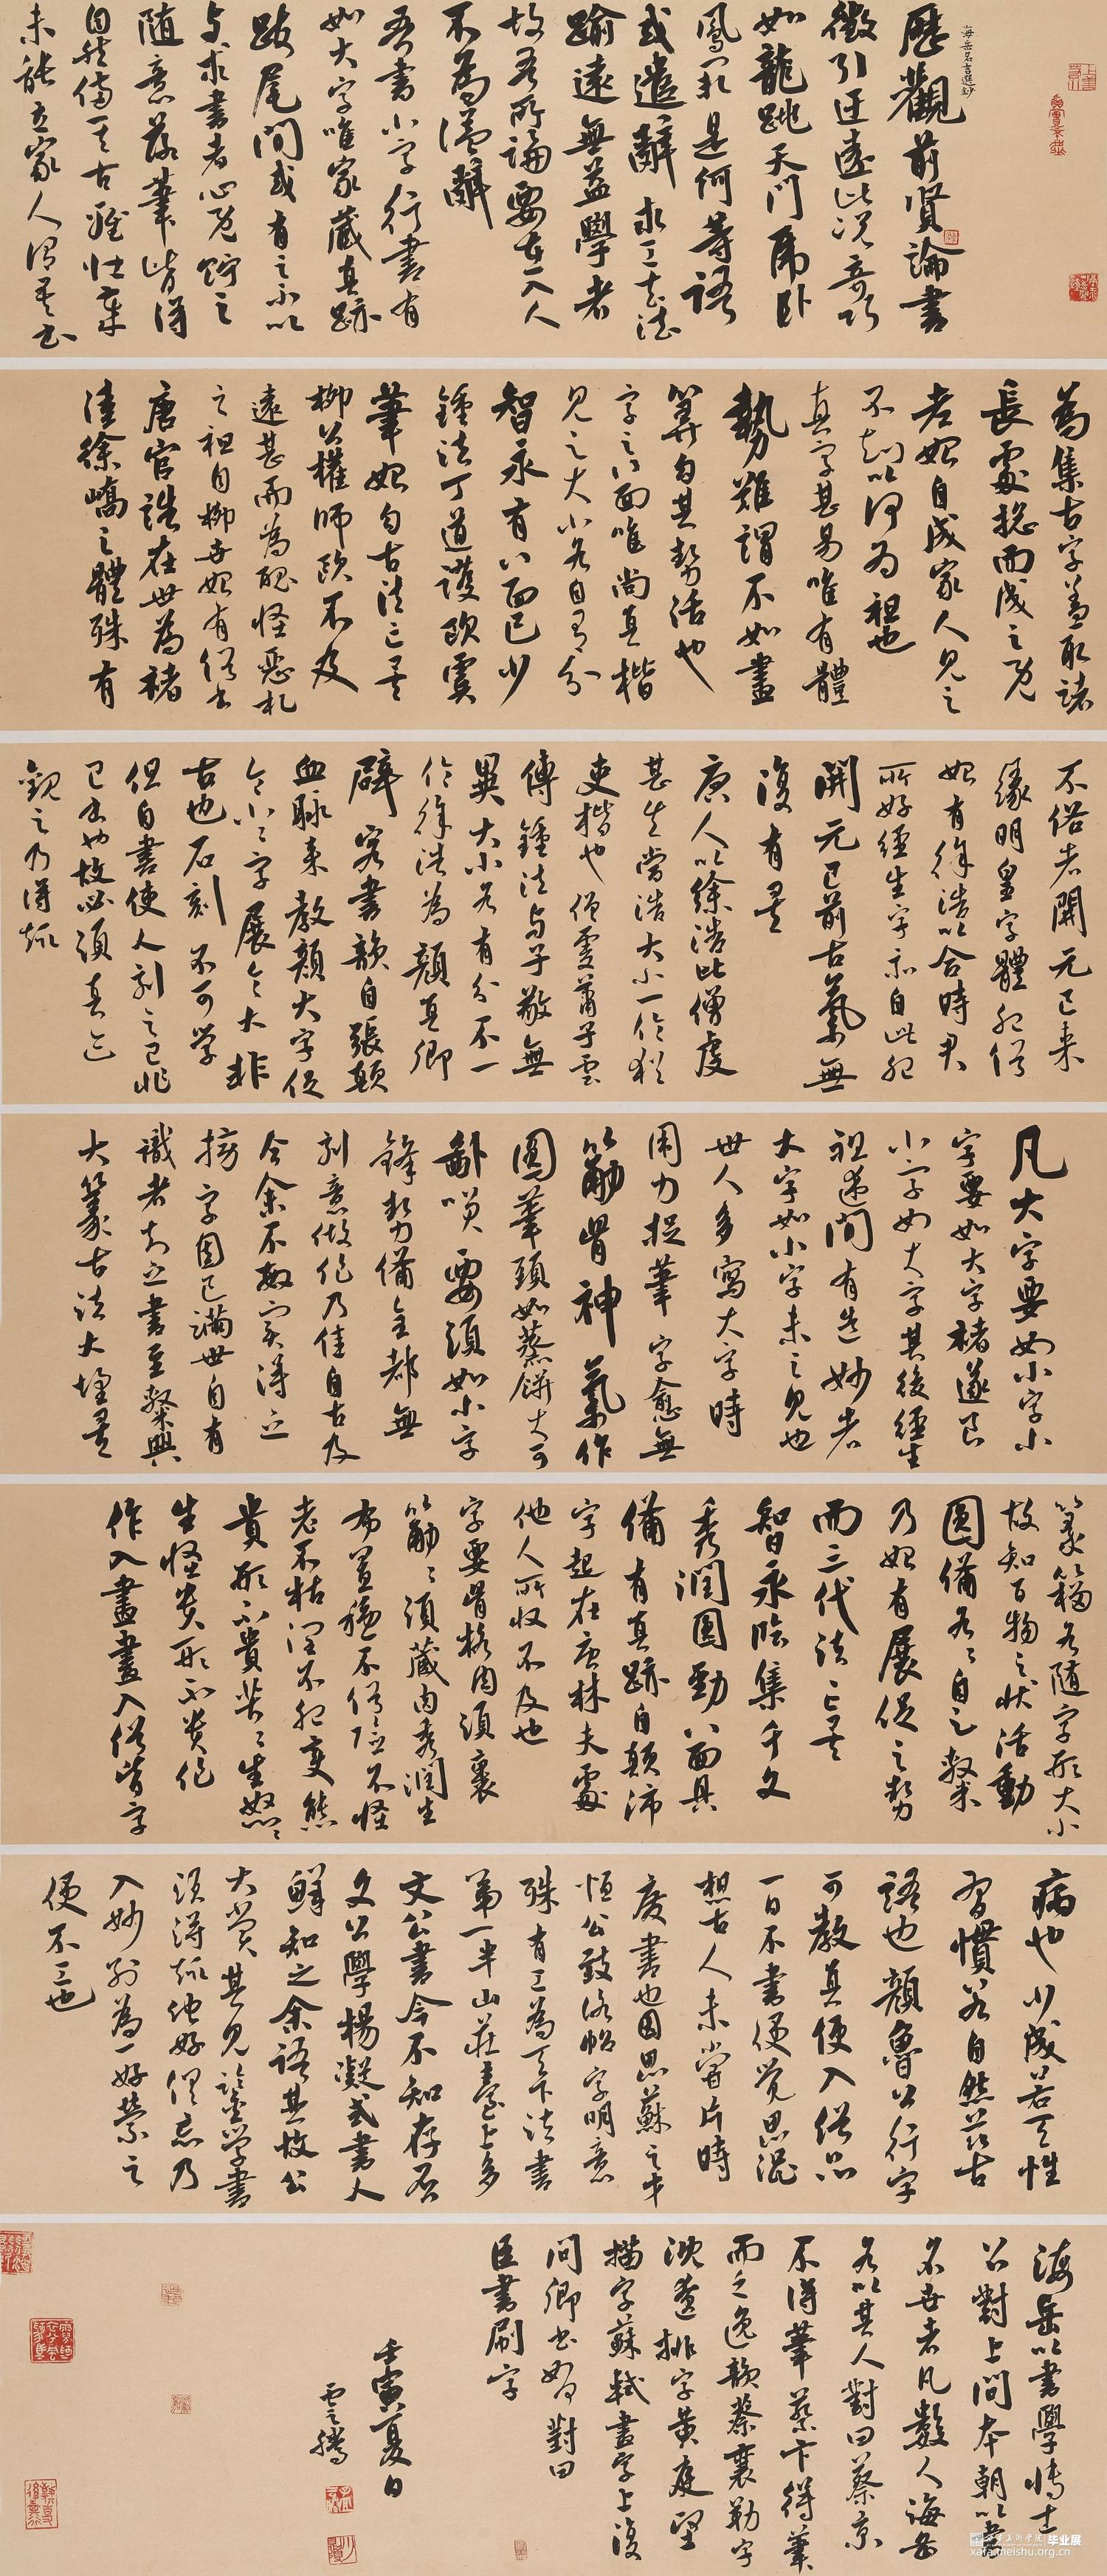 海岳名言選鈔
歷觀前賢論書
徵引迂遠比況奇巧
如龍跳天門虎卧
鳳閣是何等語
或遣辭求工去法
踰遠無益學者
故吾所論要在入人
不為溢辭
吾書小字行書有
如大字唯家藏真跡
跋尾間或有之不以
与求書者心既貯之
随意落筆皆得
自然備其古雅壮歲
未能立家人謂吾書
為集古字蓋取諸
長處總而成之既
老始自成家人見之
不知以何為祖也
真字甚易唯有體
勢難謂不如畫
筭勻其勢活也
字之八面唯尚真楷
見之大小各自有分
智永有八面已少
鍾法丁道護歐虞
筆始勻古法亡矣
柳公權師歐不及
遠甚而為醜怪惡札
之祖自柳世始有俗書
唐官誥在世為褚
陸徐嶠之體殊有
不俗者開元已来
緣明皇字體肥俗
始有徐浩以合時君
所好經生字亦自此肥
開元已前古氣無
復有矣
唐人以徐浩比僧虔
甚失當浩大小一倫猶
吏楷也僧虔蕭子雲
傳鍾法与子敬無
異大小各有分不一
倫徐浩為顏真卿
辟客書韻自張顛
血脉来教顏大字促
令小小字展令大非
古也石刻不可学
但自書使人刻之已非
己書也故必須真迹
觀之乃得趣
凡大字要如小字小
字要如大字褚遂良
小字如大字其後經生
祖述間有造妙者
大字如小字未之見也
世人多寫大字時
用力捉筆字愈無
筋骨神氣作
圓筆頭如蒸餅大可
鄙笑要須如小字
鋒勢備全都無
刻意做作乃佳自古及
今余不敏實得之
榜字固已滿世自有
識者知之書至隸興
大篆古法大壞矣
篆籀各随字形大小
故知百物之状活動
圓備各各自足隸
乃始有展促之勢
而三代法亡矣
智永臨集千文
秀潤圓勁八面具
備有真跡自顛沛
字起在唐林夫處
他人所收不及也
字要骨格肉須裹
筋筋須藏肉秀潤生
布置穩不俗險不怪
老不枯潤不肥變態
貴形不貴苦苦生怒怒
生怪貴形不貴作
作入畫畫入俗皆字
病也少成若天性
習慣若自然茲古
語也顏魯公行字
可教真便入俗品
一日不書便覺思澀
想古人未嘗片時
廢書也因思蘇之才
恒公致洛帖字明意
殊有工為天下法書
第一半山莊臺上多
文公書今不知存否
文公學楊凝式書人
鮮知之余語其故公
大賞其見鑒学書
須得趣他好俱忘乃
入妙别為一好縈之
便不工也
海岳以書學博士
召對上問本朝以書
名世者凡數人海岳
各以其人對曰蔡京
不得筆蔡卞得筆
而乏逸韻蔡襄勒字
沈遼排字黄庭堅
描字蘇軾畫字上復
問卿書如何對曰
臣書刷字
壬寅夏日
雲騰
毕业展
xafa.meishu.org.cn